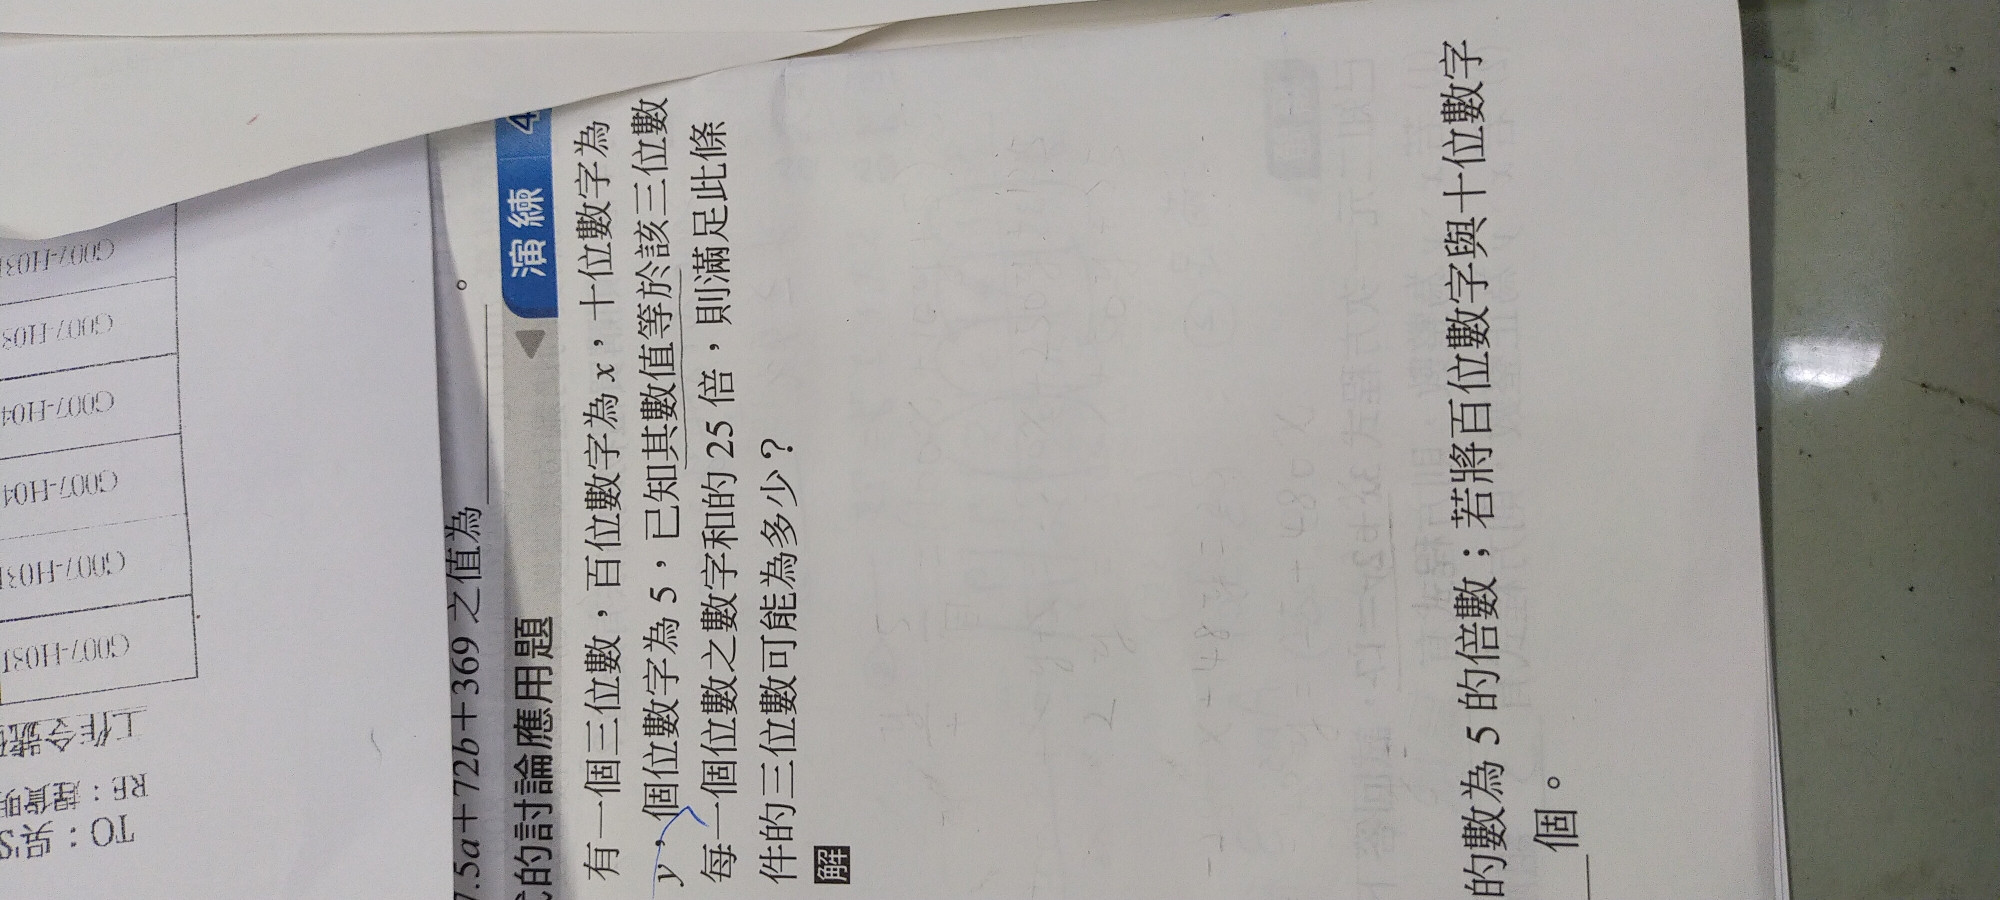 7.5a+72b+369 之值為
。
式的討論應用題
演練 4
有一個三位數，百位數字為 x，十位數字為
y，個位數字為 5，已知其數值等於該三位數
每一個位數之數字和的 25 倍，則滿足此條
件的三位數可能為多少？
解
的數為 5 的倍數；若將百位數字與十位數字
個。
TO：吳
RE：
工作令號
G007-H03
G007-H03
G007-H04
G007-H04
G007-H03
G007-H03